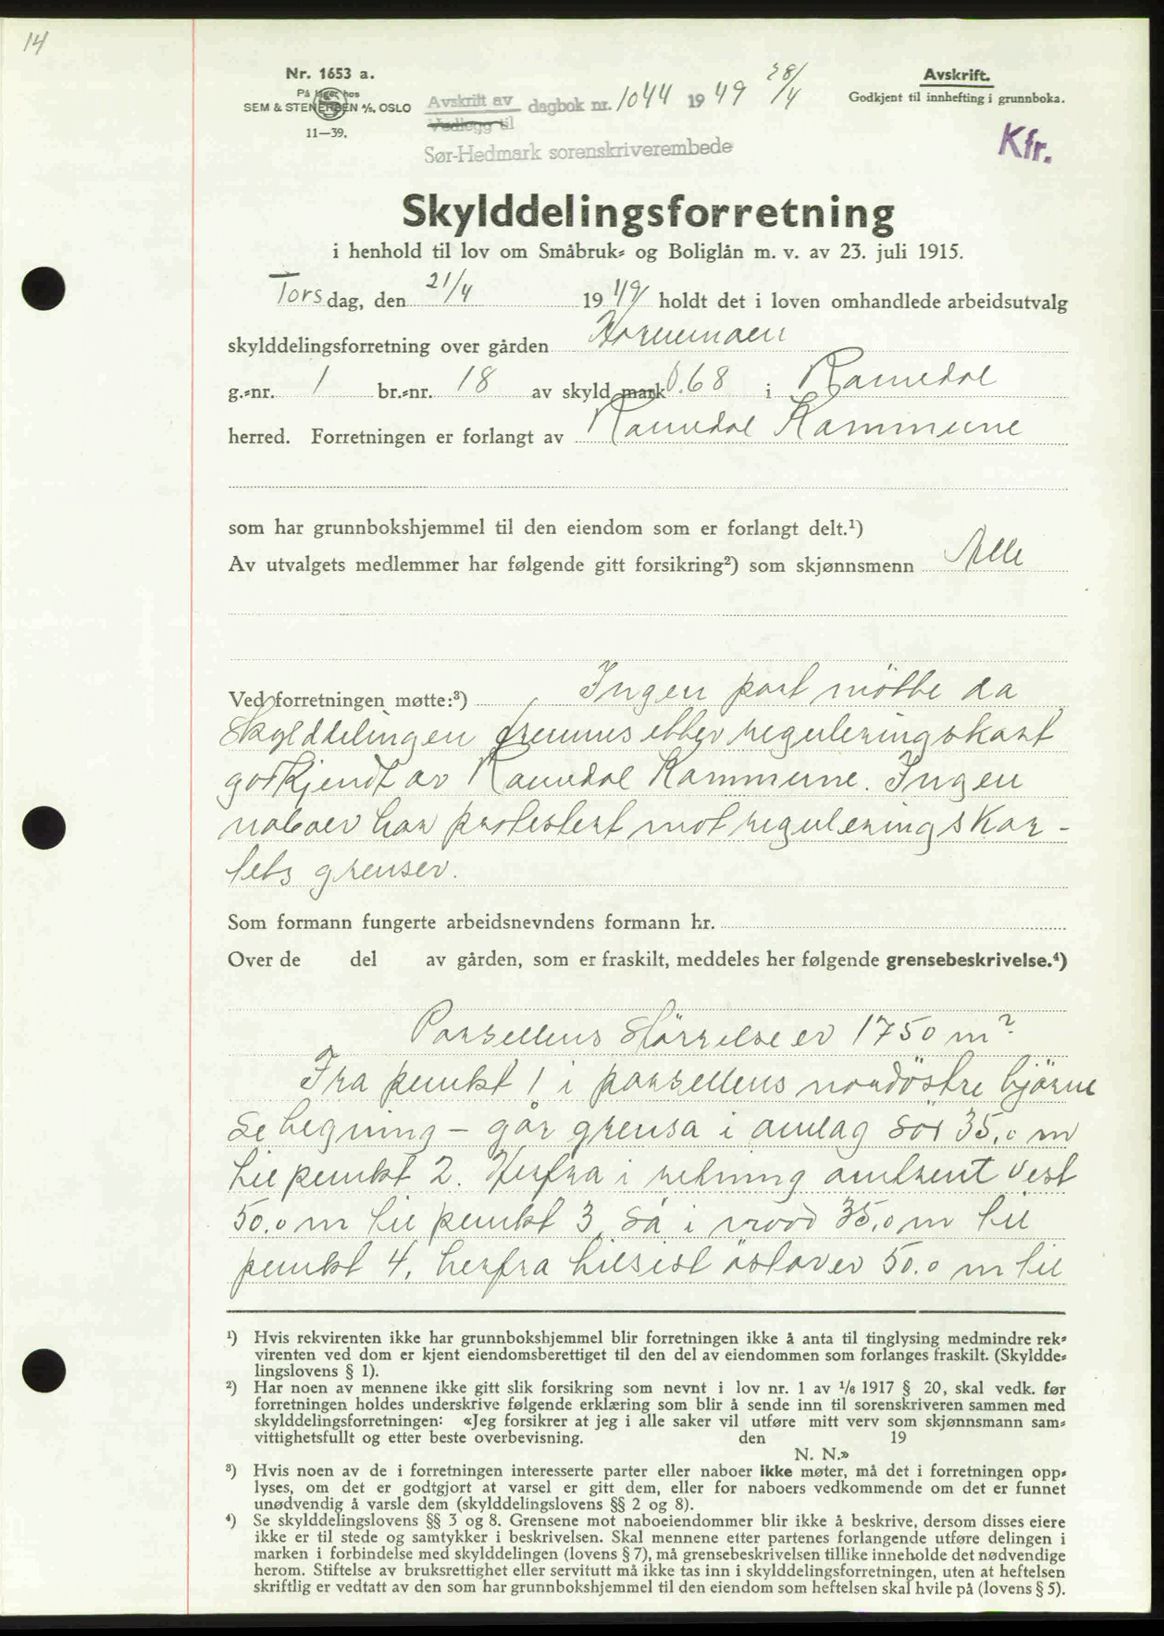 14
Nr. 1653 a.
På lager hos
SEM & STENERSEN A/S, OSLO
11—39.
Avskrift av dagbok nr. 1044 1949 28/4
Vedlegg til
Sør-Hedmark sorenskriverembede
Avskrift.
Godkjent til innhefting i grunnboka.
Kfr.
Skylddelingsforretning
i henhold til lov om Småbruk- og Boliglån m. v. av 23. juli 1915.
Torsdag, den 21/4 1949 holdt det i loven omhandlede arbeidsutvalg
skylddelingsforretning over gården
g.-nr. 1 br.-nr. 18 av skyld mark 0.68 i Romedal
herred. Forretningen er forlangt av Romedal Kommune
som har grunnbokshjemmel til den eiendom som er forlangt delt.¹)
Av utvalgets medlemmer har følgende gitt forsikring²) som skjønnsmenn Alle
Ved forretningen møtte:³) Ingen part møtte da
Skylddelingen fremmes etter reguleringskart
godkjendt av Romedal Kommune. Ingen
naboer har protestert mot reguleringskar-
tets grenser.
Som formann fungerte arbeidsnevndens formann hr.
Over de del av gården, som er fraskilt, meddeles her følgende grensebeskrivelse.⁴)
Parsellens størrelse er 1750 m².
Fra punkt 1 i parsellens nordöstre hjørne
se tegning – går grensa i amlag sör 35,0 m
til punkt 2. Herfra i retning omtrent vest
50.0 m til punkt 3, så i nord 35,0 m til
punkt 4, herfra tilsist östover 50.0 m til
¹) Hvis rekvirenten ikke har grunnbokshjemmel blir forretningen ikke å anta til tinglysing medmindre rek-
virenten ved dom er kjent eiendomsberettiget til den del av eiendommen som forlanges fraskilt. (Skyldde-
lingslovens § 1).
²) Har noen av mennene ikke gitt slik forsikring som nevnt i lov nr. 1 av 1/6 1917 § 20, skal vedk. før
forretningen holdes underskrive følgende erklæring som blir å sende inn til sorenskriveren sammen med
skylddelingsforretningen: «Jeg forsikrer at jeg i alle saker vil utføre mitt verv som skjønnsmann sam-
vittighetsfullt og etter beste overbevisning. den 19
N. N.»
³) Hvis noen av de i forretningen interesserte parter eller naboer ikke møter, må det i forretningen opp-
lyses, om det er godtgjort at varsel er gitt dem, eller for naboers vedkommende om det er funnet
unødvendig å varsle dem (skylddelingslovens §§ 2 og 8).
⁴) Se skylddelingslovens §§ 3 og 8. Grensene mot naboeiendommer blir ikke å beskrive, dersom disses eiere
ikke er til stede og samtykker i beskrivelsen. Skal mennene etter partenes forlangende utføre delingen i
marken i forbindelse med skylddelingen (lovens § 7), må grensebeskrivelsen tillike inneholde det nødvendige
herom. Stiftelse av bruksrettighet eller servitutt må ikke tas inn i skylddelingsforretningen, uten at heftelsen
skriftlig er vedtatt av den som har grunnbokshjemmel til den eiendom som heftelsen skal hvile på (lovens § 5).